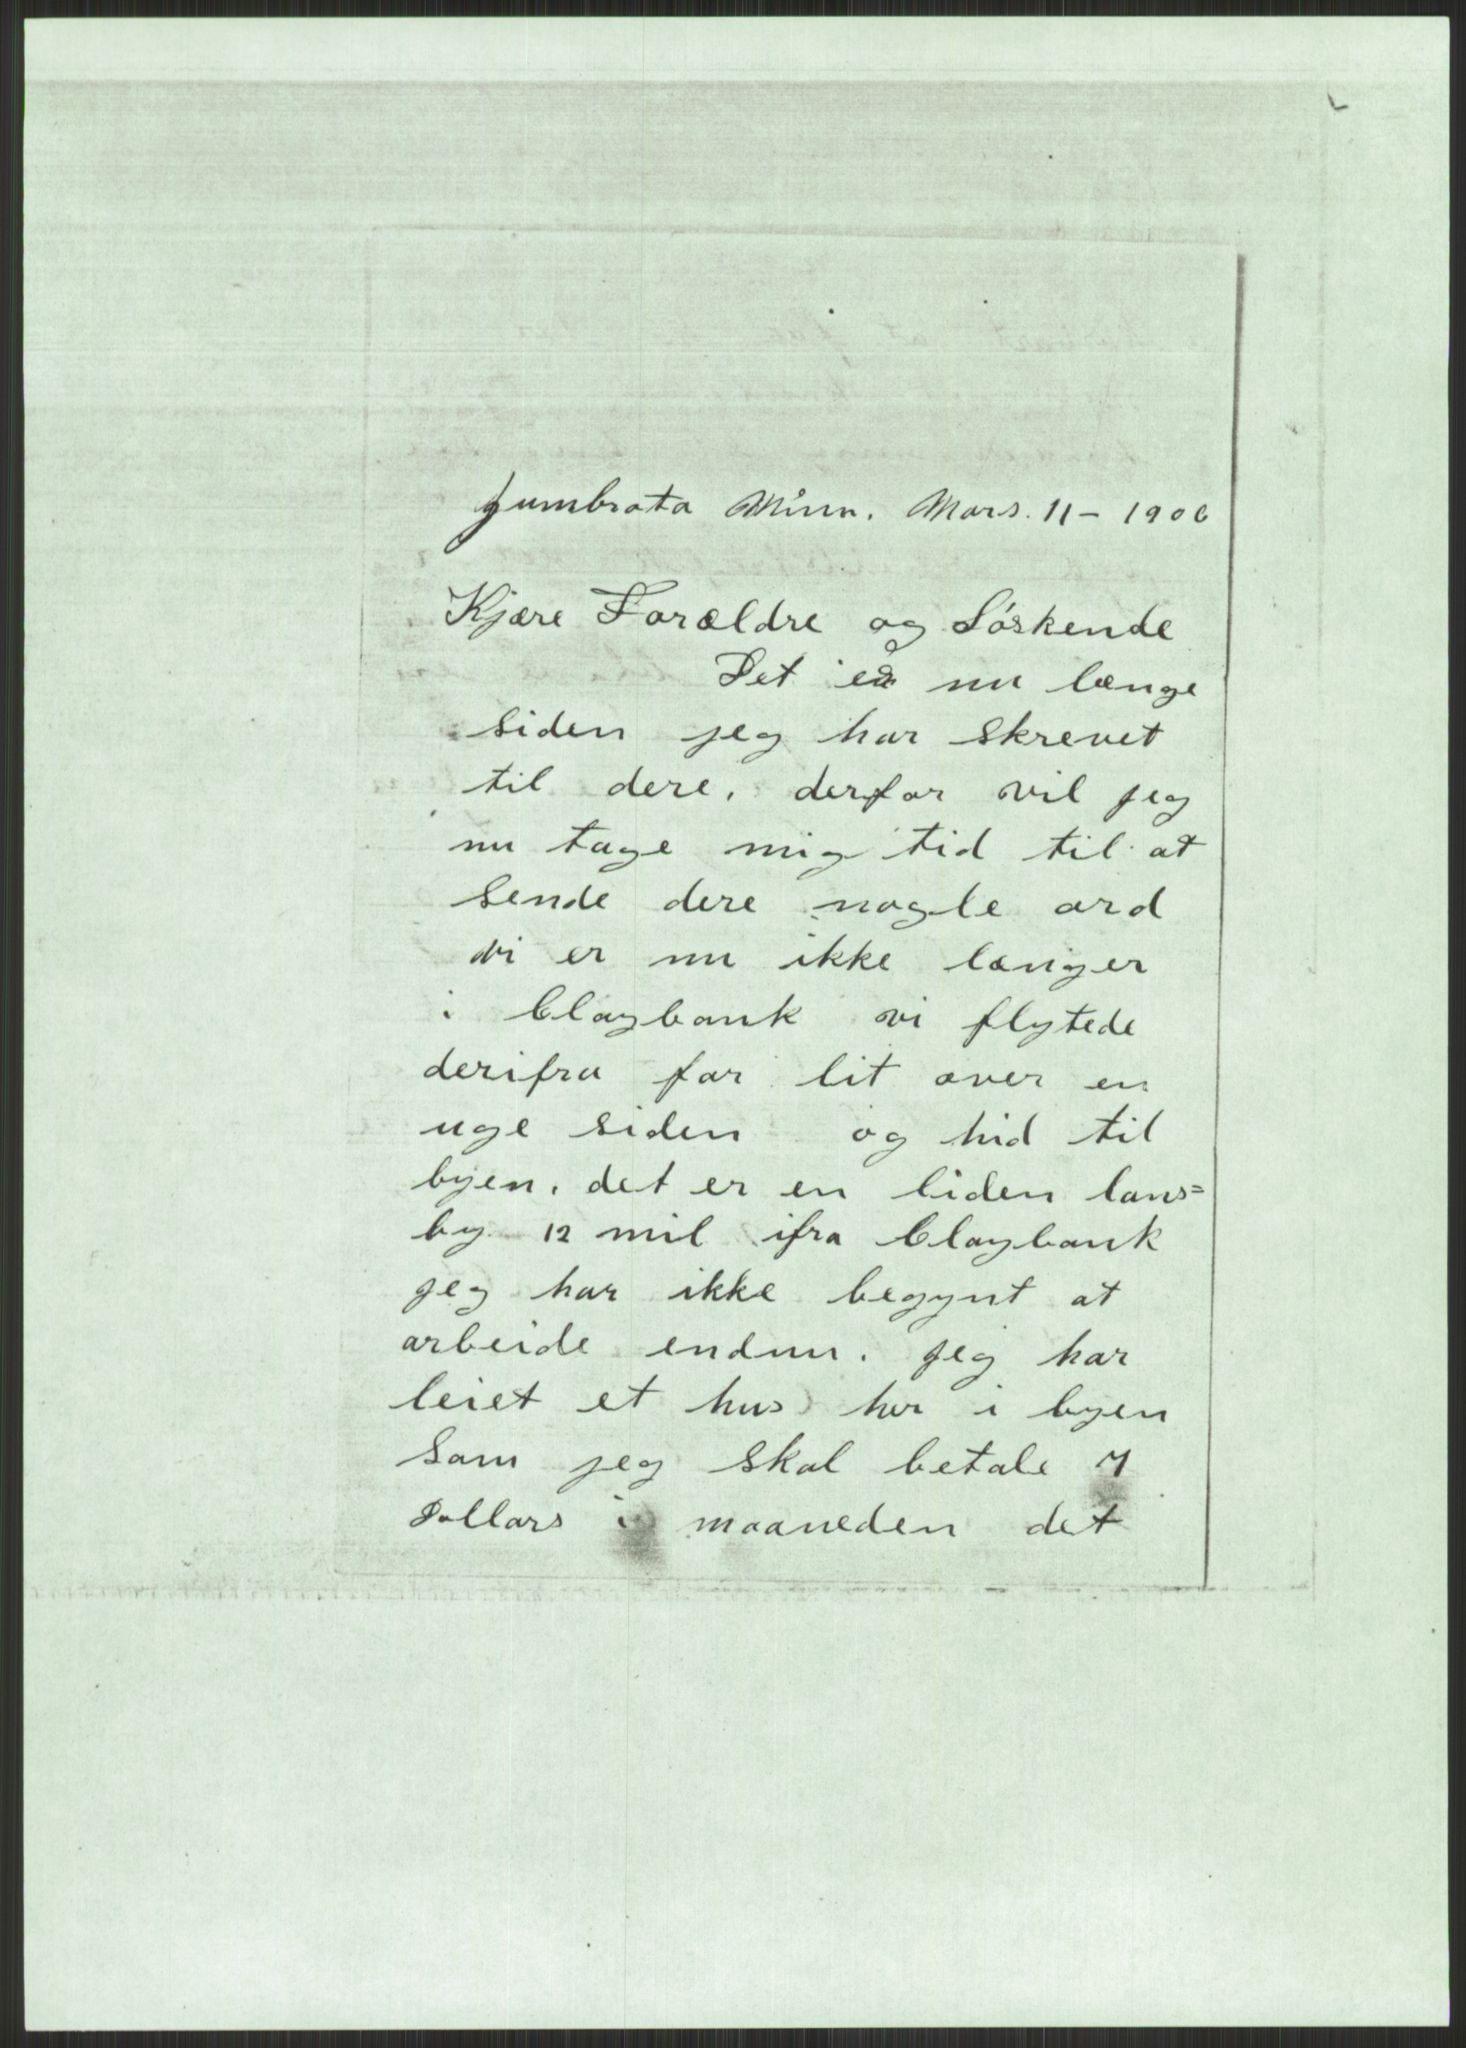 Zumbrota Minn. Mars. 11 - 1906
Kjære Forældre og Söskende
Det er nu længe
siden jeg har skrevet
til dere, derfor vil jeg
nu tage mig tid til at
sende dere nogle ord
vi er nu ikke længer
i Claybank vi flytede
derifra for lit over en
uge siden og hid til
byen. det er en liden lans=
by 12 mil ifra Claybank
jeg har ikke begynt at
arbeide endnu. jeg har
leiet et hus her i byen
som jeg skal betale 7
Dollars i maaneden det